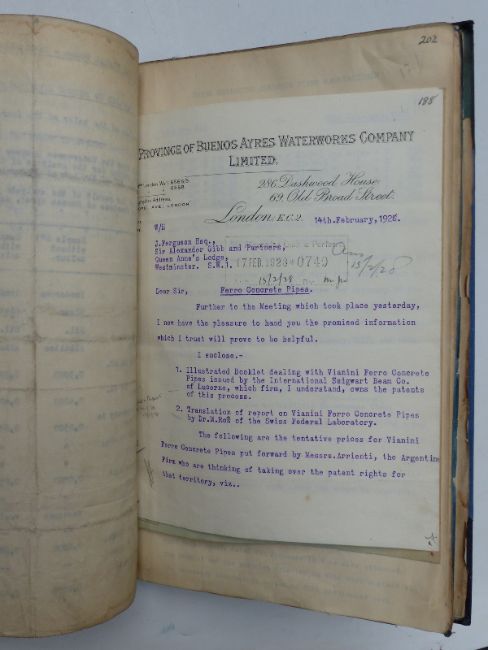 202
188
PROVINCE OF BUENOS AYRES WATERWORKS COMPANY
LIMITED.
286, Dashwood House,
69, Old Broad Street.
London, E.C.2. 14th.February, 1928.
W/H
J.Ferguson Esq.,
Sir Alexander Gibb and Partners,
Queen Anne's Lodge,
Westminster. S.W.1.
17 FEB. 1928 0749
15/2/28
15/2/28
Dear Sir, Ferro Concrete Pipes.
Further to the Meeting which took place yesterday,
I now have the pleasure to hand you the promised information
which I trust will prove to be helpful.
I enclose.-
1. Illustrated Booklet dealing with Vianini Ferro Concrete
Pipes issued by the International Seigwart Beam Co.
of Lucerne, which firm, I understand, owns the patents
of this process.
2. Translation of report on Vianini Ferro Concrete Pipes
by Dr.M.Roš of the Swiss Federal Laboratory.
The following are the tentative prices for Vianini
Ferro Concrete Pipes put forward by Messrs. Arrienti, the Argentine
Firm who are thinking of taking over the patent rights for
that territory, viz..